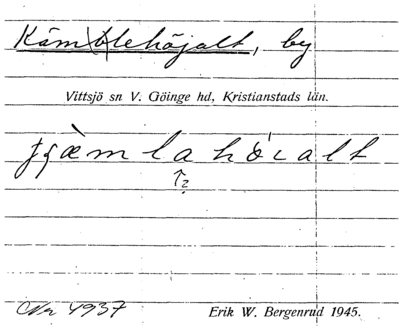 Kämblehöjalt, by
Vittsjö sn V. Göinge hd, Kristianstads län.
↑?
Nr 4937 Erik W. Bergenrud 1945.